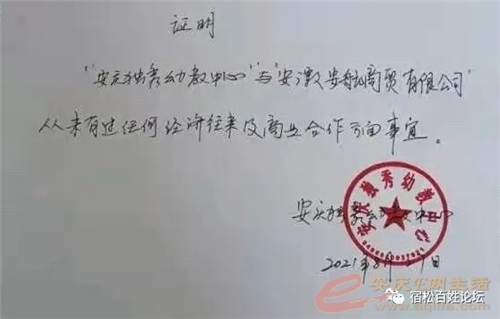 证明
"安庆独秀幼教中心"与"安徽安翰商贸有限公司"
从未有过任何经济往来及商业合作方面事宜。
安庆独秀幼教中心
安庆独秀幼教中心
2021年8月27日
安庆E网生活
宿松百姓论坛